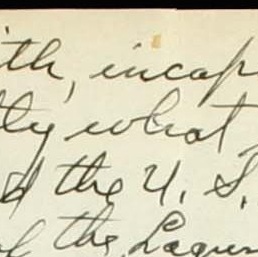 ith, incap
tly what
d the U. S.
of the Lagun